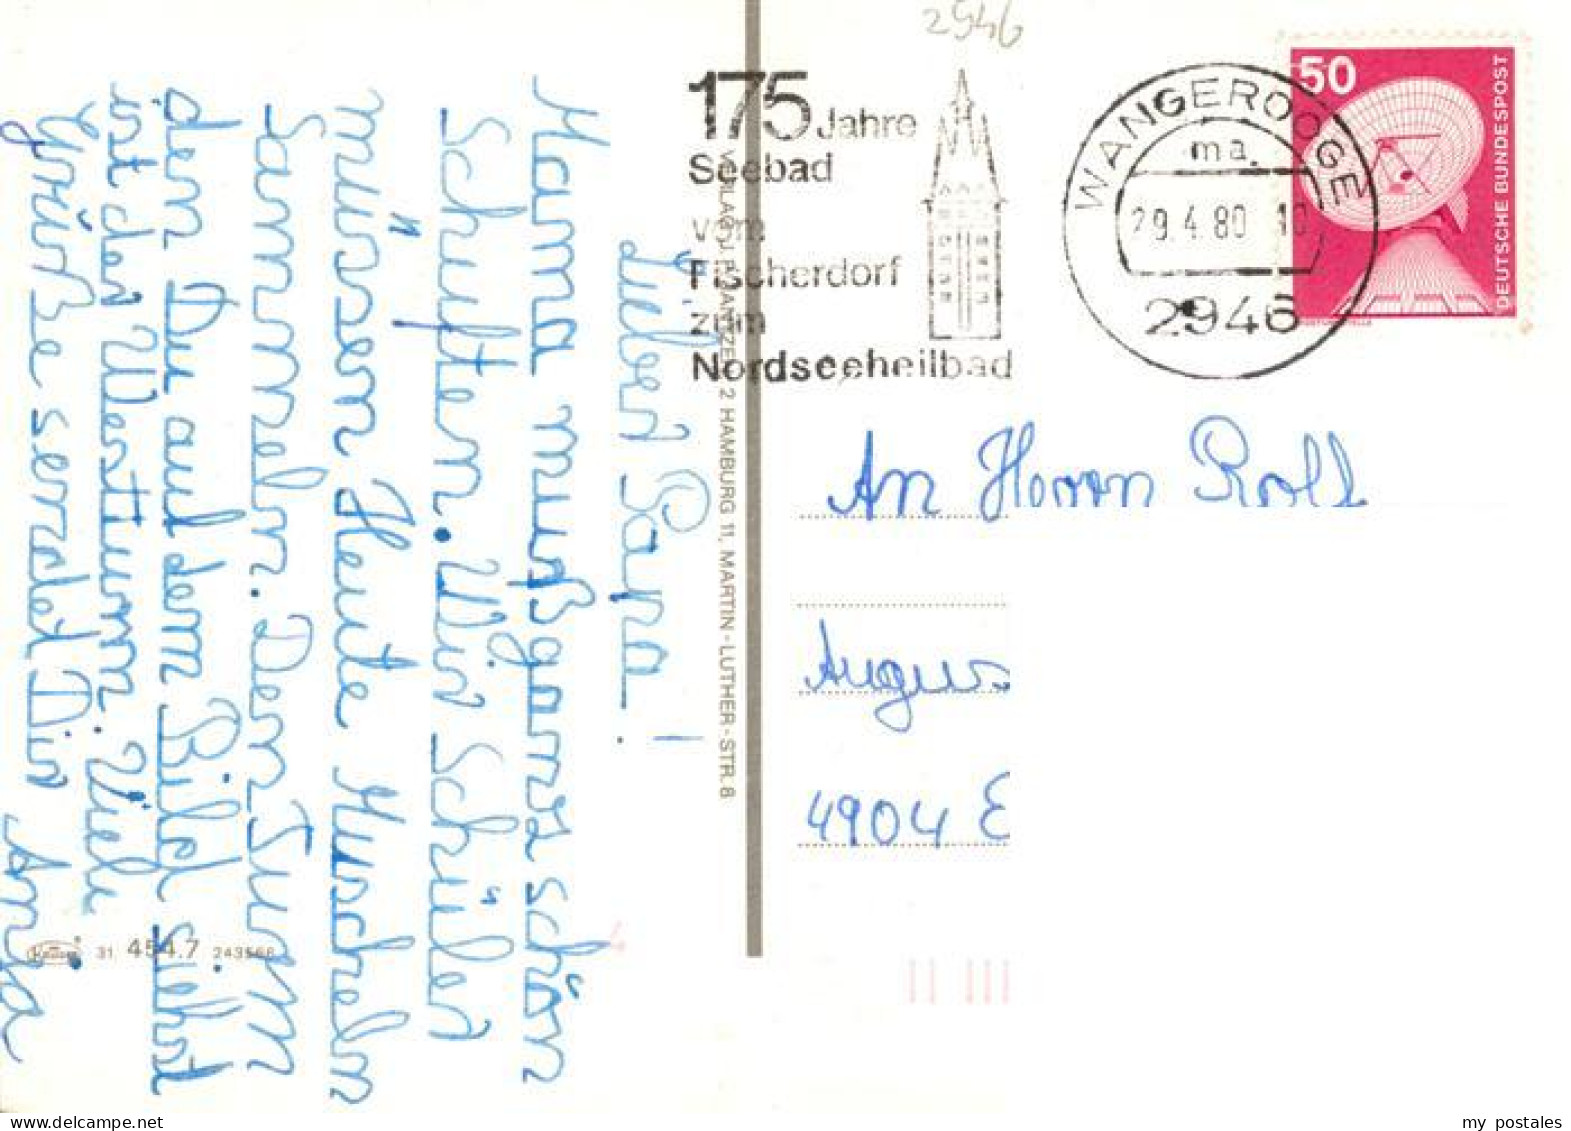 Lieber Papa!
Mama muß ganz schön
schuften. Wir Schüler
müssen Heute Muscheln
Sammeln. Den Turm
den Du auf dem Bild siehst
ist der Westturm. Viele
Grüße sendet Dir
Anja
31 454.7 243566
VERLAG J. KRANTZE 2 HAMBURG 11, MARTIN-LUTHER-STR. 8
2946
175 Jahre
Seebad
vom
Fischerdorf
zum
Nordseeheilbad
WANGEROOGE
ma
29.4.80 10
2946
50
DEUTSCHE BUNDESPOST
An Herrn Rolf
Augus
4904 E
4
my postales